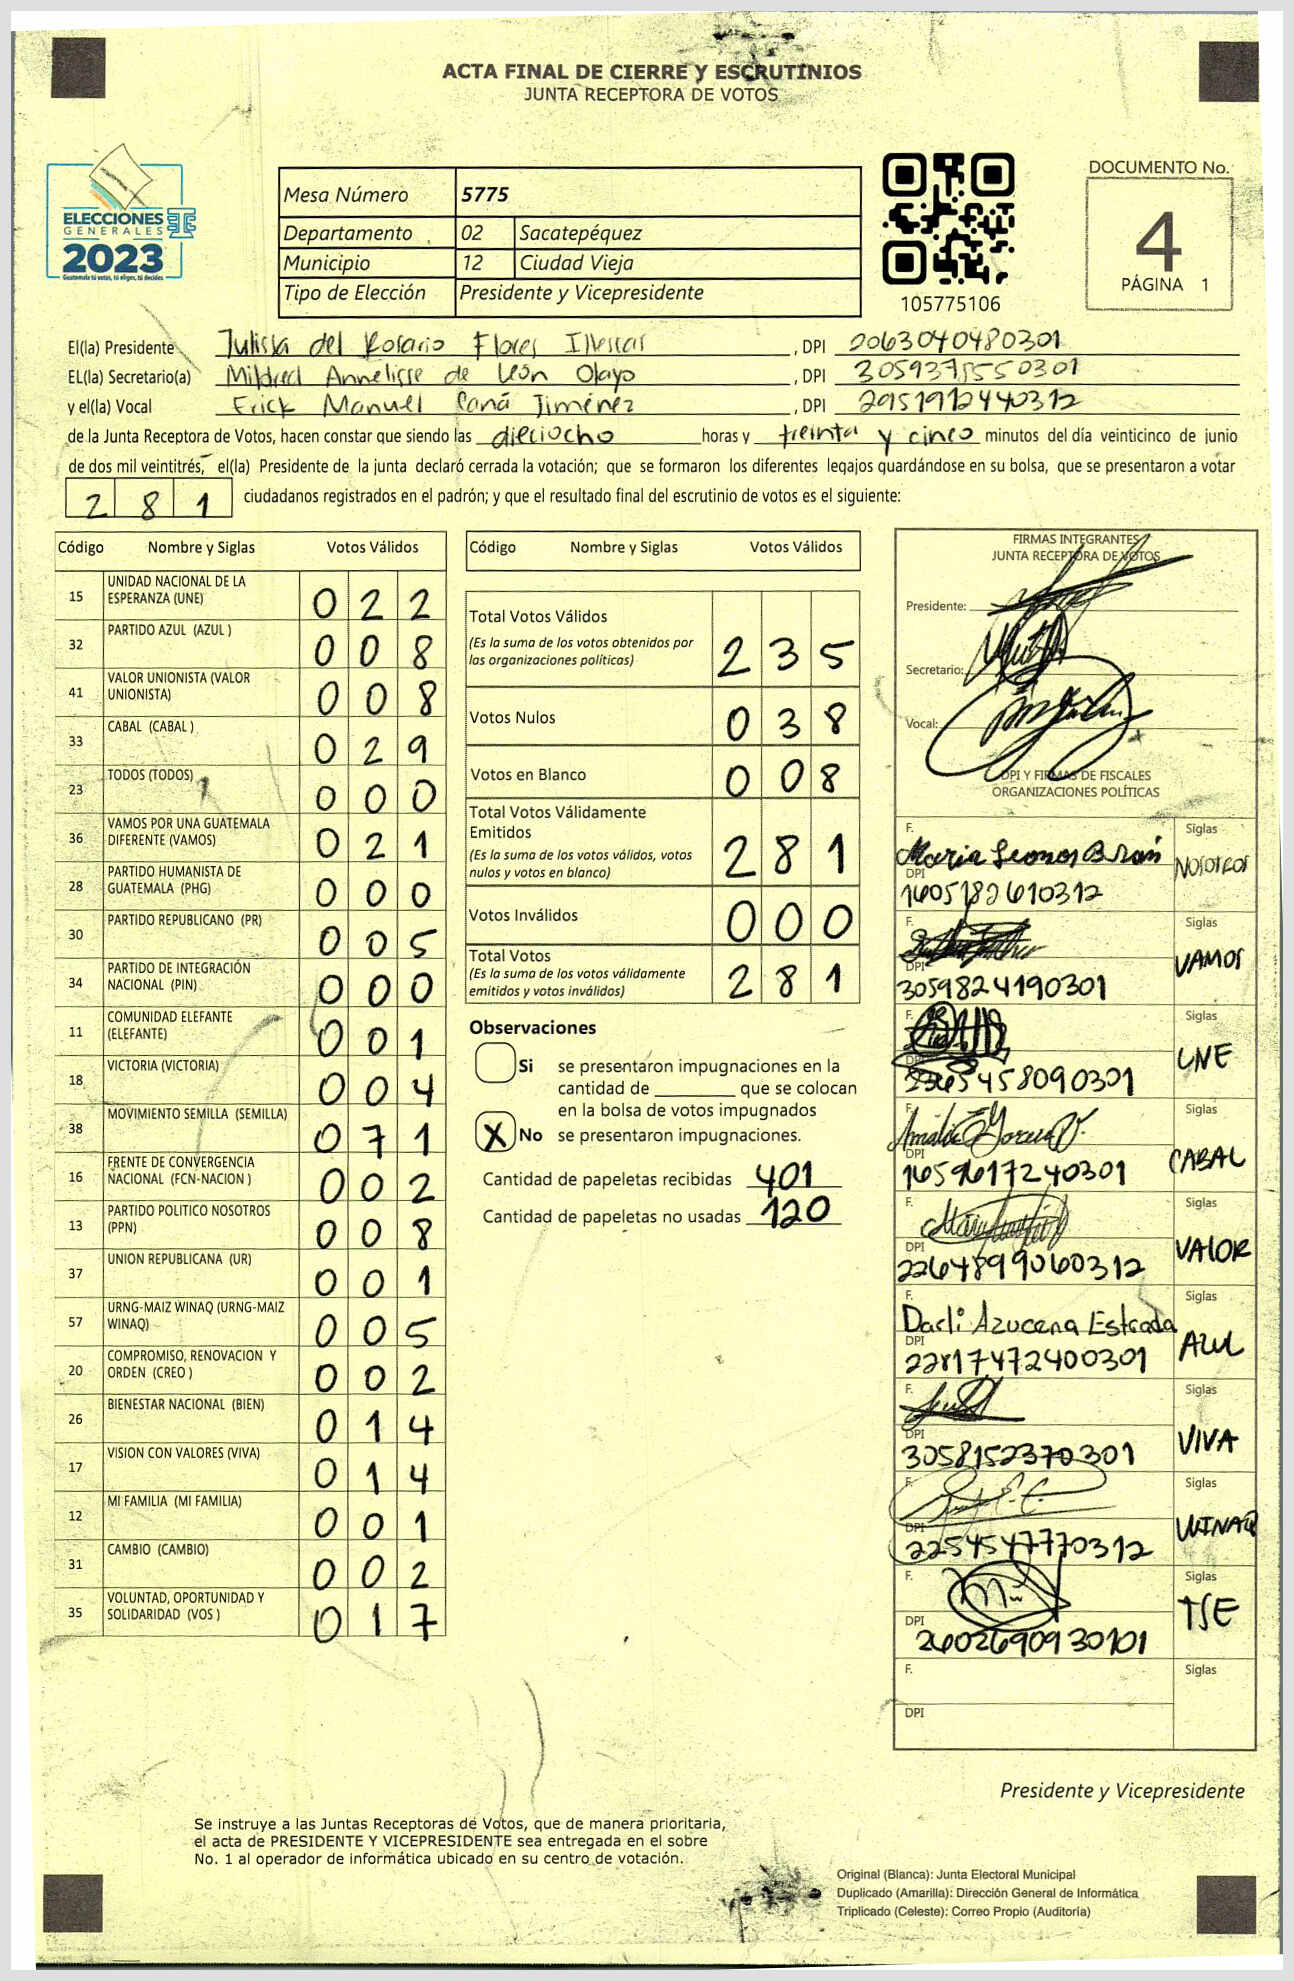 ACTA FINAL DE CIERRE Y ESCRUTINIOS
JUNTA RECEPTORA DE VOTOS
ELECCIONES
GENERALES
2023
Guatemala tú votas, tú eliges, tú decides
Mesa Número 5775
Departamento 02 Sacatepéquez
Municipio 12 Ciudad Vieja
Tipo de Elección Presidente y Vicepresidente
105775106
DOCUMENTO No.
4
PÁGINA 1
El(la) Presidente Juliska del Rosario Flores Illescas, DPI 2063040480301
EL(la) Secretario(a) Mildred Annelisse de León Olayo, DPI 3059378550301
y el(la) Vocal Erick Manuel Caná Jiménez, DPI 2951912440312
de la Junta Receptora de Votos, hacen constar que siendo las dieciocho horas y treinta y cinco minutos del día veinticinco de junio
de dos mil veintitrés, el(la) Presidente de la junta declaró cerrada la votación; que se formaron los diferentes legajos quardándose en su bolsa, que se presentaron a votar
281 ciudadanos registrados en el padrón; y que el resultado final del escrutinio de votos es el siguiente:
Código Nombre y Siglas Votos Válidos
15 UNIDAD NACIONAL DE LA ESPERANZA (UNE) 022
32 PARTIDO AZUL (AZUL ) 008
41 VALOR UNIONISTA (VALOR UNIONISTA) 008
33 CABAL (CABAL ) 029
23 TODOS (TODOS) 000
36 VAMOS POR UNA GUATEMALA DIFERENTE (VAMOS) 021
28 PARTIDO HUMANISTA DE GUATEMALA (PHG) 000
30 PARTIDO REPUBLICANO (PR) 005
34 PARTIDO DE INTEGRACIÓN NACIONAL (PIN) 000
11 COMUNIDAD ELEFANTE (ELEFANTE) 001
18 VICTORIA (VICTORIA) 004
38 MOVIMIENTO SEMILLA (SEMILLA) 071
16 FRENTE DE CONVERGENCIA NACIONAL (FCN-NACION ) 002
13 PARTIDO POLITICO NOSOTROS (PPN) 008
37 UNION REPUBLICANA (UR) 001
57 URNG-MAIZ WINAQ (URNG-MAIZ WINAQ) 005
20 COMPROMISO, RENOVACION Y ORDEN (CREO ) 002
26 BIENESTAR NACIONAL (BIEN) 014
17 VISION CON VALORES (VIVA) 014
12 MI FAMILIA (MI FAMILIA) 001
31 CAMBIO (CAMBIO) 002
35 VOLUNTAD, OPORTUNIDAD Y SOLIDARIDAD (VOS ) 017
Código Nombre y Siglas Votos Válidos
Total Votos Válidos 235
(Es la suma de los votos obtenidos por
las organizaciones políticas)
Votos Nulos 038
Votos en Blanco 008
Total Votos Válidamente
Emitidos 281
(Es la suma de los votos válidos, votos
nulos y votos en blanco)
Votos Inválidos 000
Total Votos 281
(Es la suma de los votos válidamente
emitidos y votos inválidos)
Observaciones
Si se presentaron impugnaciones en la
cantidad de ________ que se colocan
en la bolsa de votos impugnados
X No se presentaron impugnaciones.
Cantidad de papeletas recibidas 401
Cantidad de papeletas no usadas 120
FIRMAS INTEGRANTES
JUNTA RECEPTORA DE VOTOS
Presidente:
Secretario:
Vocal:
DPI Y FIRMAS DE FISCALES
ORGANIZACIONES POLÍTICAS
F. Maria Leonor Bran Siglas
DPI 1605182610312 NOSOTROS
F. Siglas
DPI 3059824190301 VAMOS
F. Siglas
DPI 2365458090301 UNE
F. Siglas
DPI 1659617240301 CABAL
F. Siglas
DPI 2264899060312 VALOR
F. Darli Azucena Estrada Siglas
DPI 22817472400301 AZUL
F. Siglas
DPI 3058152370301 VIVA
F. Siglas
DPI 2254547770312 WINAQ
F. Siglas
DPI 2602690930101 TSE
F. Siglas
DPI
Presidente y Vicepresidente
Se instruye a las Juntas Receptoras de Votos, que de manera prioritaria,
el acta de PRESIDENTE Y VICEPRESIDENTE sea entregada en el sobre
No. 1 al operador de informática ubicado en su centro de votación.
Original (Blanca): Junta Electoral Municipal
Duplicado (Amarilla): Dirección General de Informática
Triplicado (Celeste): Correo Propio (Auditoría)